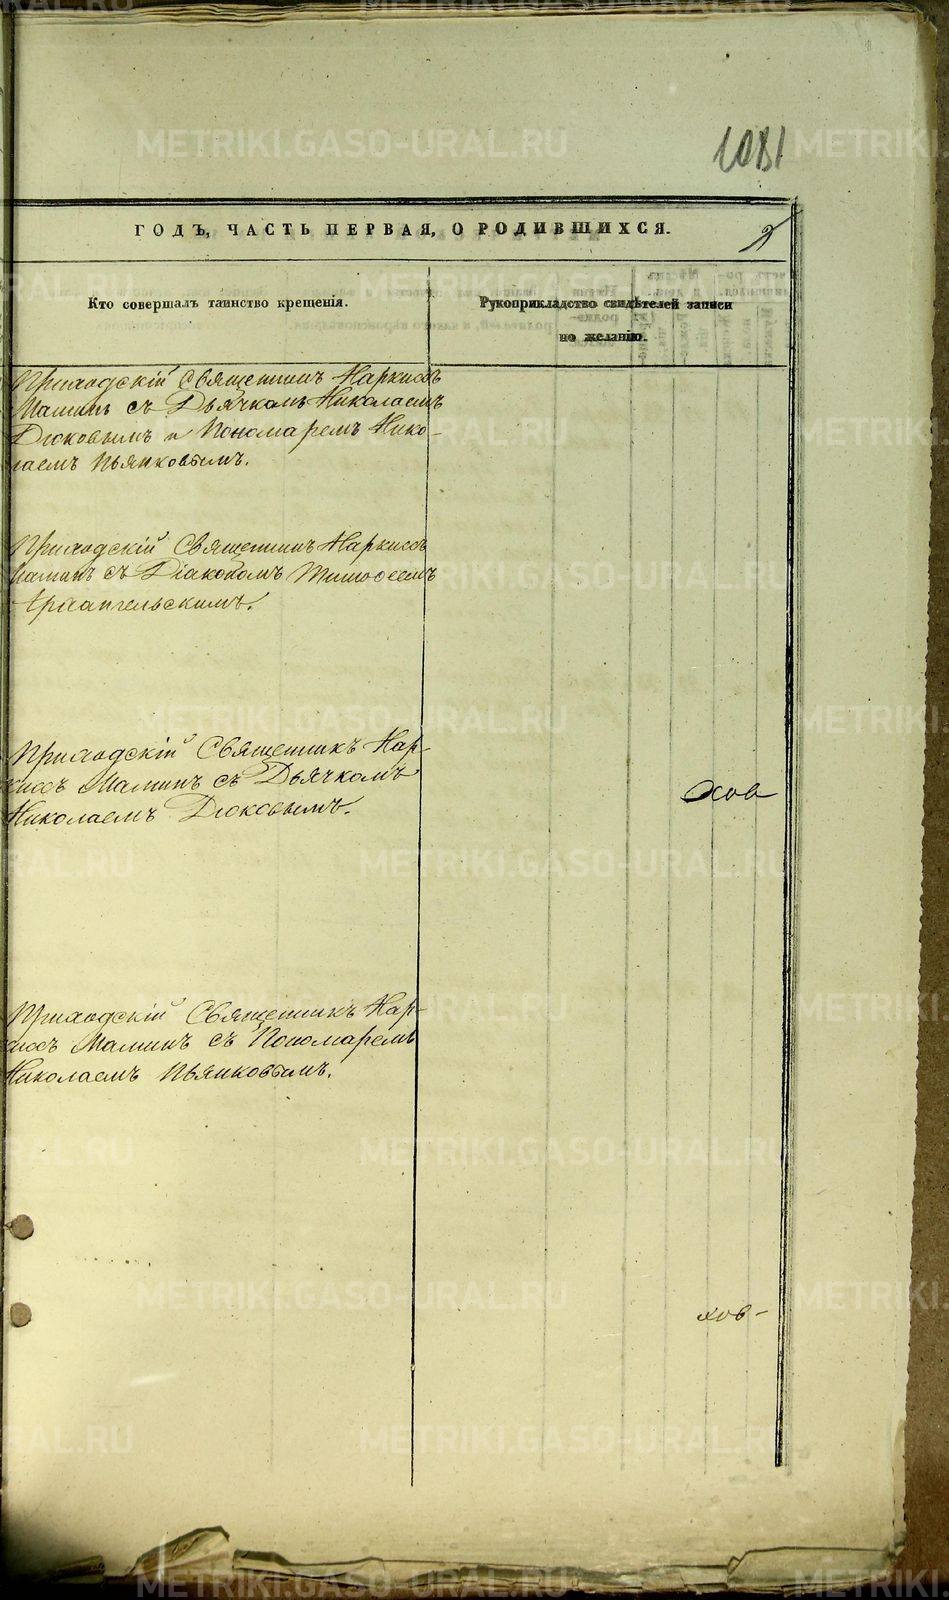 1081
ГОДЪ, ЧАСТЬ ПЕРВАЯ, О РОДИВШИХСЯ.
2
Кто совершалъ таинство крещенія.
Рукоприкладство свидѣтелей записи
по желанію.
Приходскій Священникъ Наркиссъ
Маминъ съ Дьячкомъ Николаемъ
Дюковымъ и Пономаремъ Нико-
лаемъ Пьянковымъ.
Приходскій Священникъ Наркиссъ
Маминъ съ Діакономъ Тимофеемъ
Архангельскимъ.
Приходскій Священникъ Нар-
киссъ Маминъ съ Дьячкомъ
Николаемъ Дюковымъ.
хов
Приходскій Священникъ Нар-
киссъ Маминъ съ Пономаремъ
Николаемъ Пьянковымъ.
хов-
METRIKI.GASO-URAL.RU